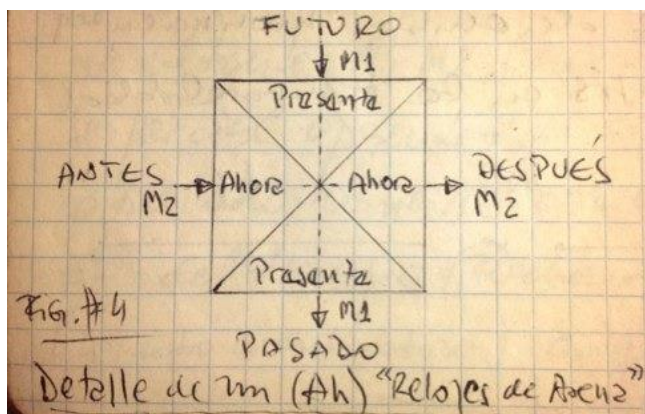 FUTURO
M1
Presente
ANTES
M2
Ahora
Ahora
DESPUÉS
M2
Presente
FIG. #4
M1
PASADO
Detalle de un (Ah) "Relojes de Arena"